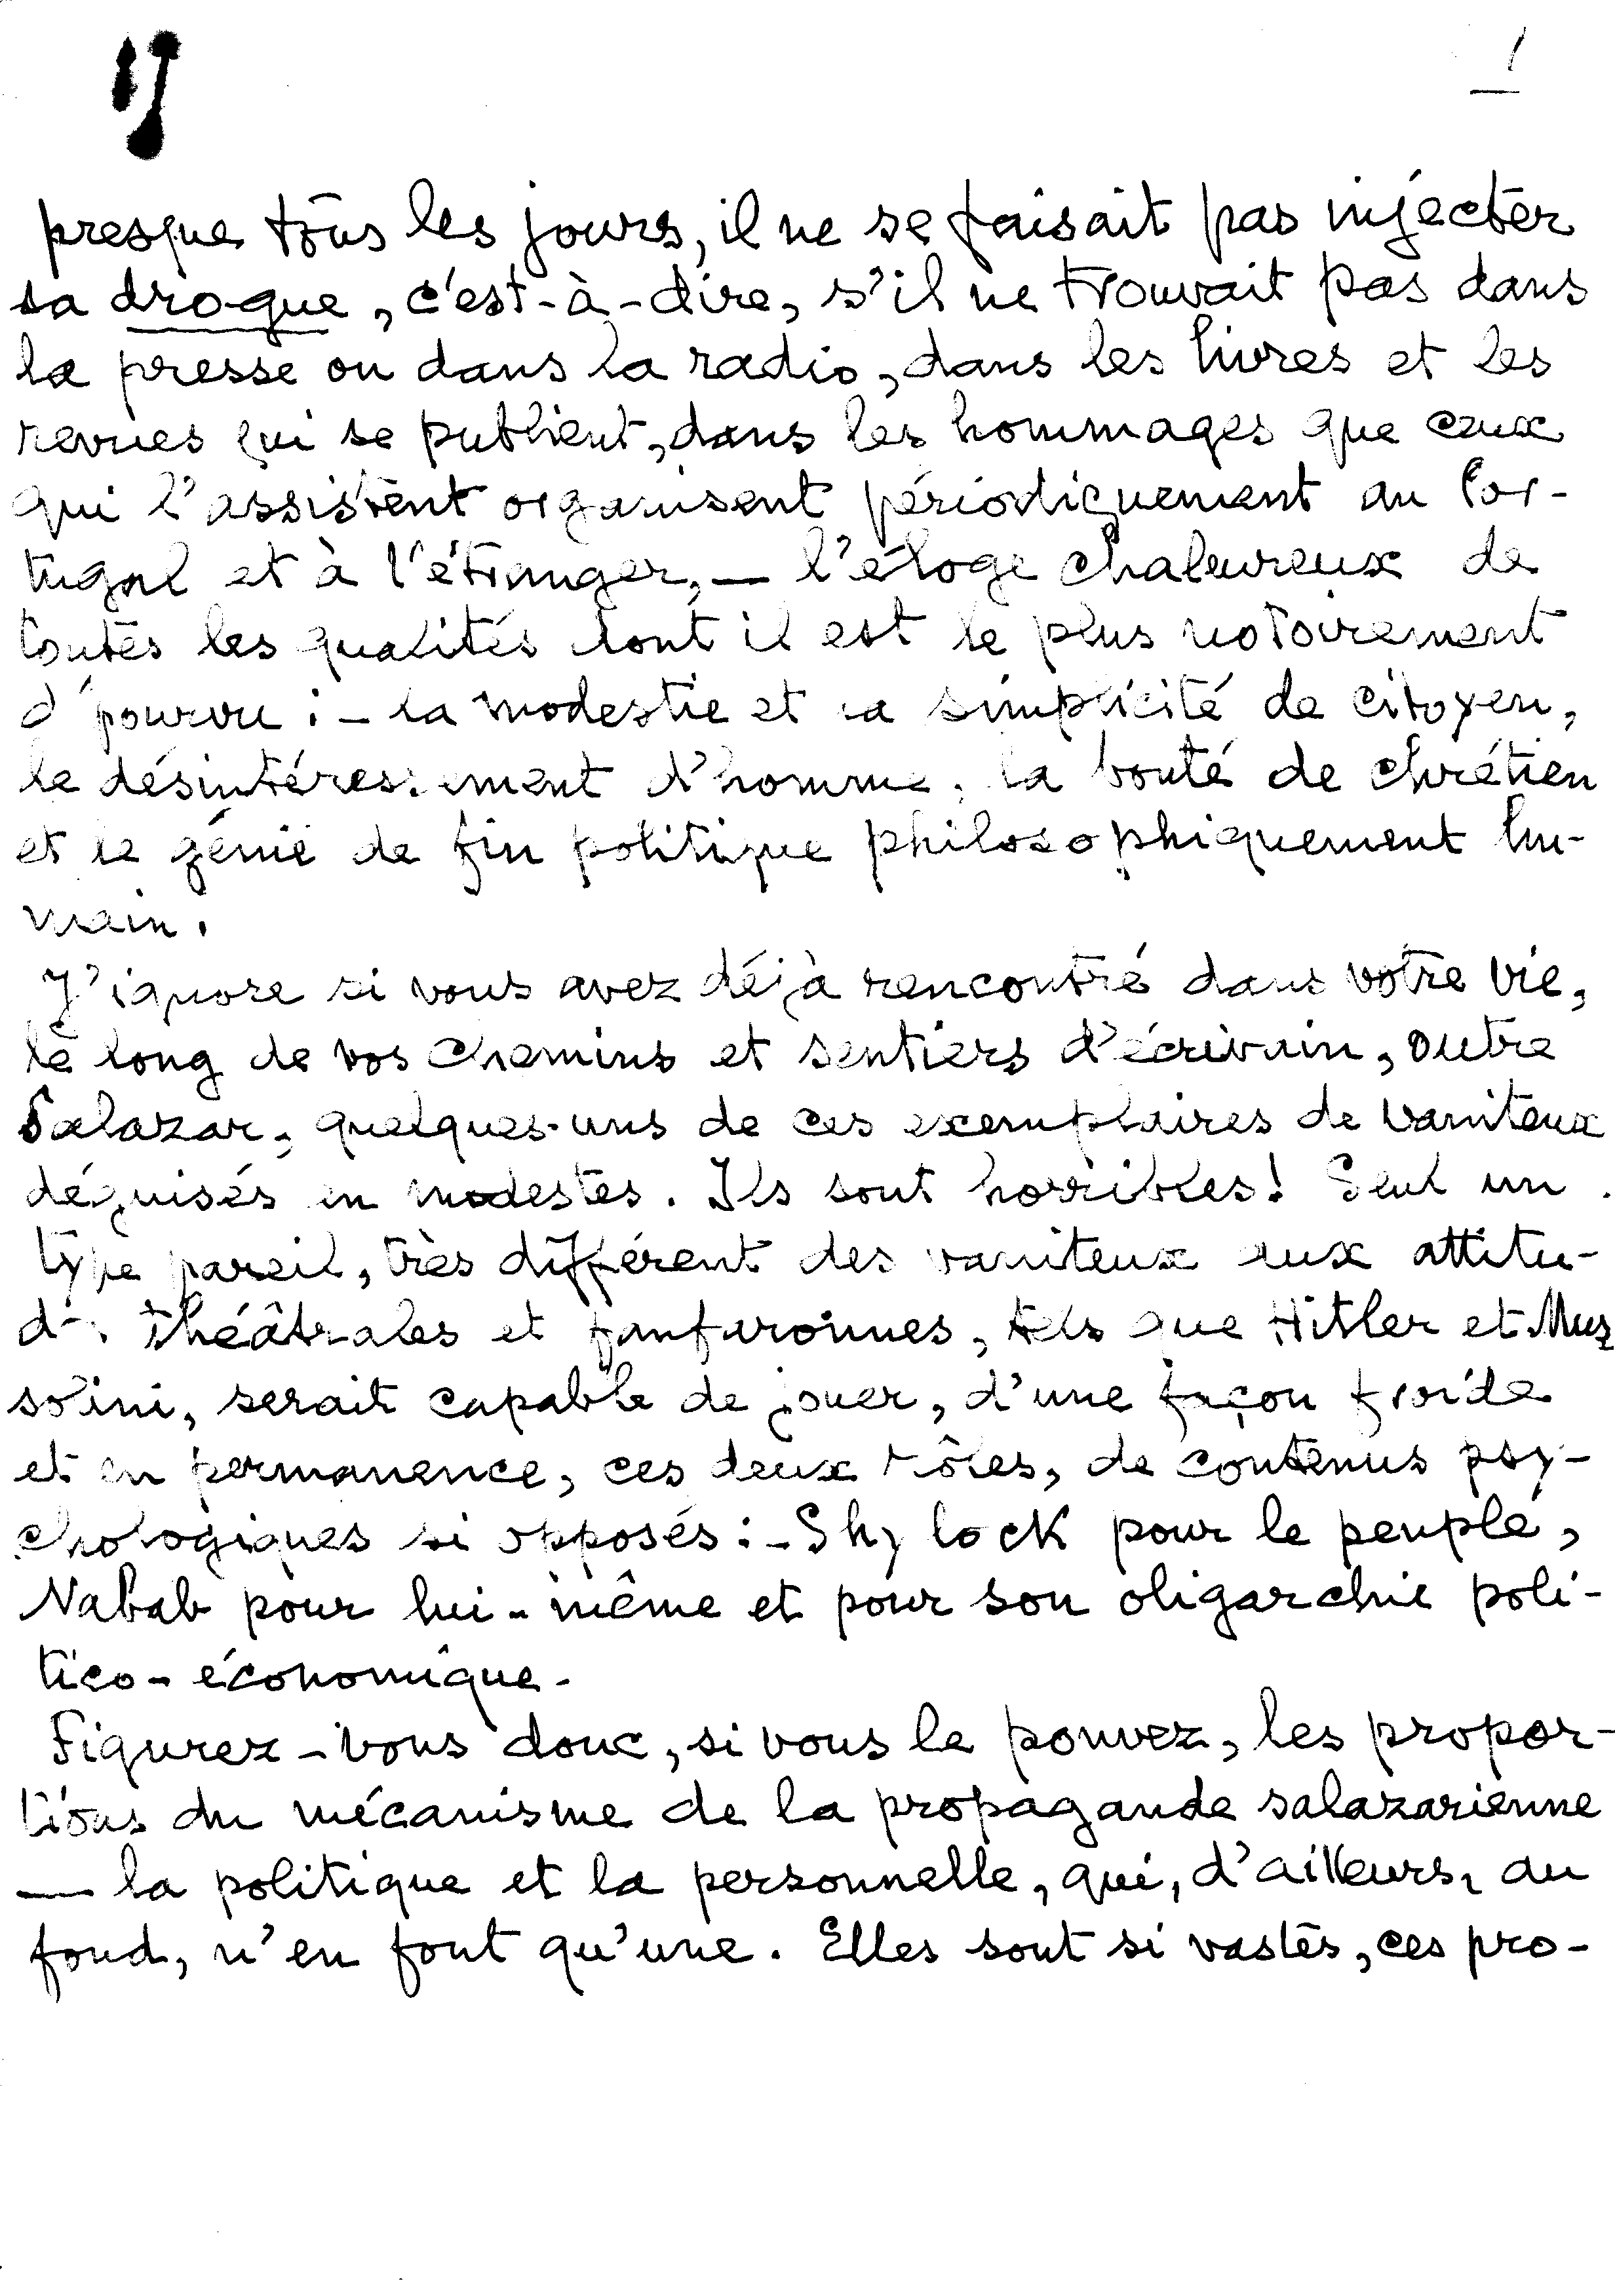 1
presque tous les jours, il ne se faisait pas injecter
sa drogue, c'est-à-dire, s'il ne trouvait pas dans
la presse ou dans la radio, dans les livres et les
revues qui se publient, dans les hommages que ceux
qui l'assistent organisent périodiquement au Por-
tugal et à l'étranger, — l'éloge chaleureux de
toutes les qualités dont il est le plus notoirement
dépourvu : - la modestie et la simplicité de citoyen,
le désintéressement d'homme, la bonté de chrétien
et le génie de fin politique philosophiquement hu-
main.
J'ignore si vous avez déjà rencontré dans votre vie,
le long de vos chemins et sentiers d'écrivain, outre
Salazar, quelques-uns de ces exemplaires de vaniteux
déguisés en modestes. Ils sont horribles! Seul un
type pareil, très différent des vaniteux aux attitu-
des théâtrales et fanfaronnes, tels que Hitler et Mus
solini, serait capable de jouer, d'une façon froide
et en permanence, ces deux rôles, de contenus psy-
chologiques si opposés : - Shylock pour le peuple,
Nabab pour lui-même et pour son oligarchie poli-
tico-économique.
Figurez-vous donc, si vous le pouvez, les propor-
tions du mécanisme de la propagande salazarienne
— la politique et la personnelle, qui, d'ailleurs, au
fond, n'en font qu'une. Elles sont si vastes, ces pro-